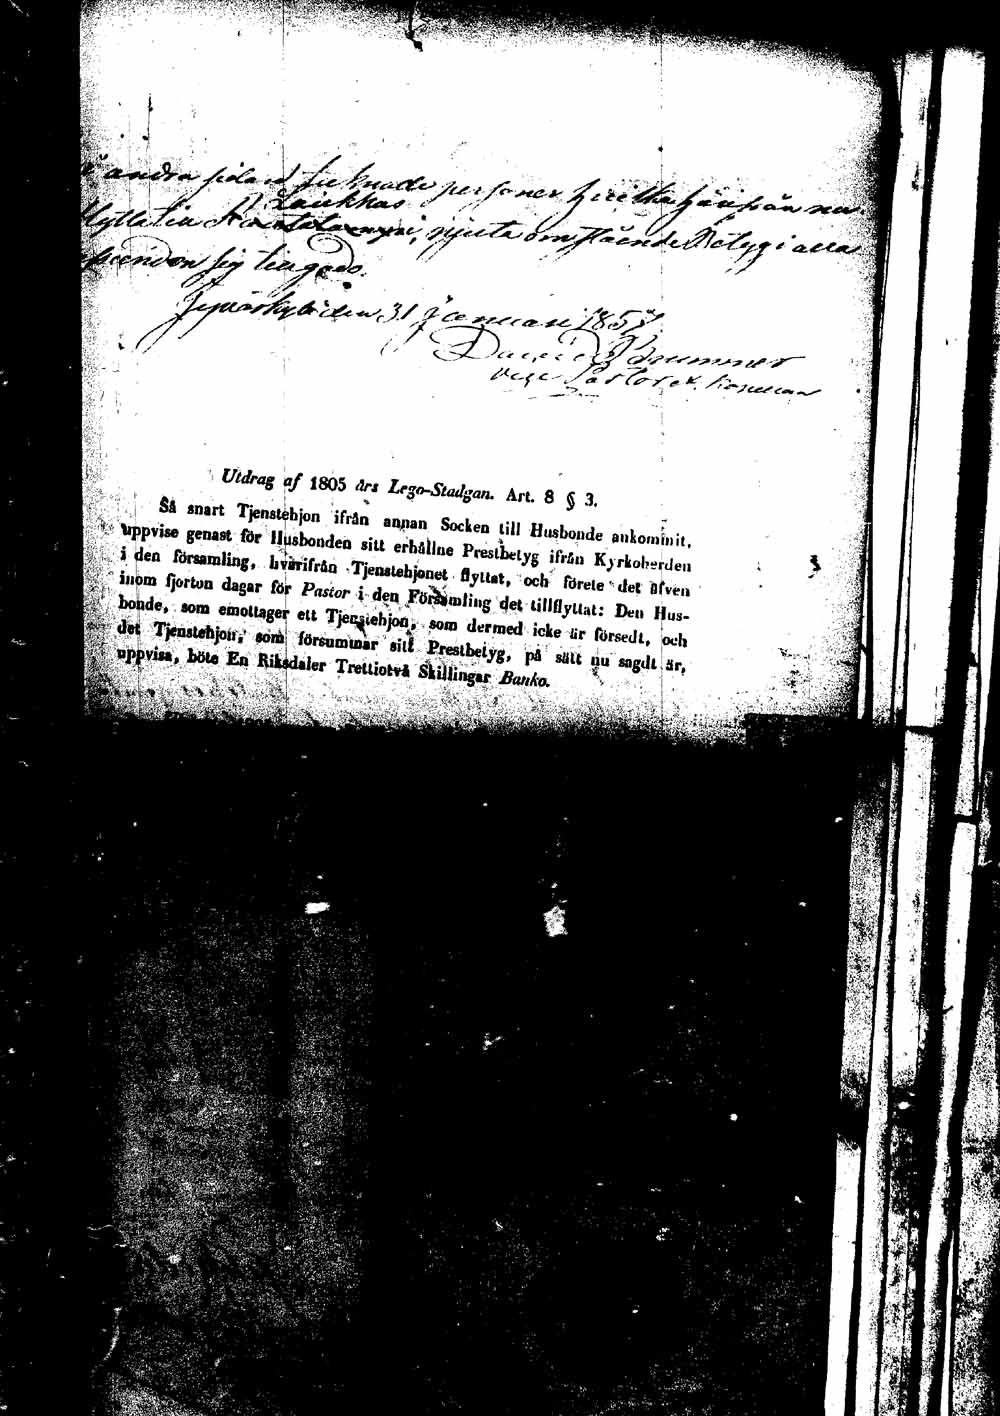 å andra sidan tecknade personer hvilka härifrån nu
Laukkas
flytta till njuta omstående Betyg i allas
sig till godo.
Jyväskylä den 31 Januari 1857.
David Brummer
vice Pastor
Utdrag af 1805 års Lego-Stadgan. Art. 8 § 3.
Så snart Tjenstehjon ifrån annan Socken till Husbonde ankommit,
uppvise genast för Husbonden sitt erhållne Prestbetyg ifrån Kyrkoherden
i den församling, hvarifrån Tjenstehjonet flyttat, och förete det äfven
inom fjorton dagar för Pastor i den Församling det tillflyttat: Den Hus-
bonde, som emottager ett Tjenstehjon, som dermed icke är försedt, och
det Tjenstehjon, som försummar sitt Prestbetyg, på sätt nu sagdt är,
uppvisa, böte En Riksdaler Trettiotvå Skillingar Banko.